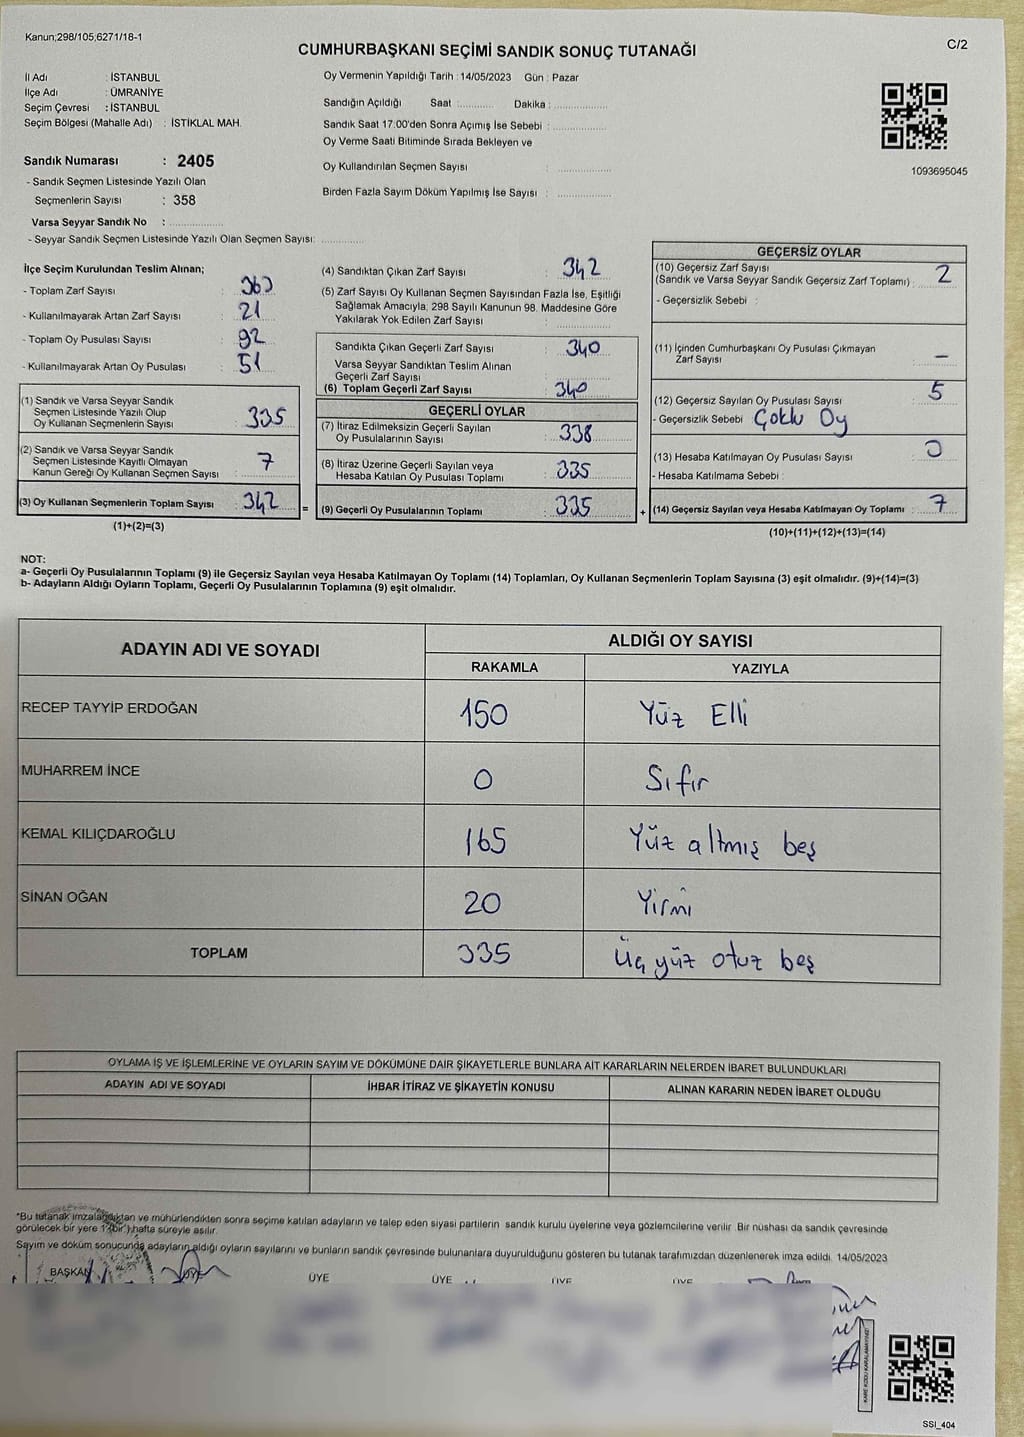 Kanun;298/105;6271/18-1
C/2
CUMHURBAŞKANI SEÇİMİ SANDIK SONUÇ TUTANAĞI
İl Adı : İSTANBUL
İlçe Adı : ÜMRANİYE
Seçim Çevresi : İSTANBUL
Seçim Bölgesi (Mahalle Adı) : İSTİKLAL MAH.
Sandık Numarası : 2405
- Sandık Seçmen Listesinde Yazılı Olan
Seçmenlerin Sayısı : 358
Varsa Seyyar Sandık No :
- Seyyar Sandık Seçmen Listesinde Yazılı Olan Seçmen Sayısı:
Oy Vermenin Yapıldığı Tarih : 14/05/2023 Gün : Pazar
Sandığın Açıldığı Saat : Dakika :
Sandık Saat 17:00'den Sonra Açımış İse Sebebi :
Oy Verme Saati Bitiminde Sırada Bekleyen ve
Oy Kullandırılan Seçmen Sayısı :
Birden Fazla Sayım Döküm Yapılmış İse Sayısı :
1093695045
İlçe Seçim Kurulundan Teslim Alınan;
- Toplam Zarf Sayısı : 363
- Kullanılmayarak Artan Zarf Sayısı : 21
- Toplam Oy Pusulası Sayısı : 92
- Kullanılmayarak Artan Oy Pusulası : 51
(1) Sandık ve Varsa Seyyar Sandık
Seçmen Listesinde Yazılı Olup
Oy Kullanan Seçmenlerin Sayısı : 335
(2) Sandık ve Varsa Seyyar Sandık
Seçmen Listesinde Kayıtlı Olmayan
Kanun Gereği Oy Kullanan Seçmen Sayısı : 7
(3) Oy Kullanan Seçmenlerin Toplam Sayısı : 342
(1)+(2)=(3)
=
(4) Sandıktan Çıkan Zarf Sayısı : 342
(5) Zarf Sayısı Oy Kullanan Seçmen Sayısından Fazla İse, Eşitliği
Sağlamak Amacıyla, 298 Sayılı Kanunun 98. Maddesine Göre
Yakılarak Yok Edilen Zarf Sayısı :
Sandıkta Çıkan Geçerli Zarf Sayısı : 340
Varsa Seyyar Sandıktan Teslim Alınan
Geçerli Zarf Sayısı :
(6) Toplam Geçerli Zarf Sayısı : 340
GEÇERLİ OYLAR
(7) İtiraz Edilmeksizin Geçerli Sayılan
Oy Pusulalarının Sayısı : 338
(8) İtiraz Üzerine Geçerli Sayılan veya
Hesaba Katılan Oy Pusulası Toplamı : 335
(9) Geçerli Oy Pusulalarının Toplamı : 335
+
GEÇERSİZ OYLAR
(10) Geçersiz Zarf Sayısı
(Sandık ve Varsa Seyyar Sandık Geçersiz Zarf Toplamı) : 2
- Geçersizlik Sebebi :
(11) İçinden Cumhurbaşkanı Oy Pusulası Çıkmayan
Zarf Sayısı : –
(12) Geçersiz Sayılan Oy Pusulası Sayısı : 5
- Geçersizlik Sebebi : Çoklu Oy
(13) Hesaba Katılmayan Oy Pusulası Sayısı : 0
- Hesaba Katılmama Sebebi :
(14) Geçersiz Sayılan veya Hesaba Katılmayan Oy Toplamı : 7
(10)+(11)+(12)+(13)=(14)
NOT:
a- Geçerli Oy Pusulalarının Toplamı (9) ile Geçersiz Sayılan veya Hesaba Katılmayan Oy Toplamı (14) Toplamları, Oy Kullanan Seçmenlerin Toplam Sayısına (3) eşit olmalıdır. (9)+(14)=(3)
b- Adayların Aldığı Oyların Toplamı, Geçerli Oy Pusulalarının Toplamına (9) eşit olmalıdır.
ADAYIN ADI VE SOYADI ALDIĞI OY SAYISI
RAKAMLA YAZIYLA
RECEP TAYYİP ERDOĞAN 150 Yüz Elli
MUHARREM İNCE 0 Sıfır
KEMAL KILIÇDAROĞLU 165 Yüz altmış beş
SİNAN OĞAN 20 Yirmi
TOPLAM 335 Üç yüz otuz beş
OYLAMA İŞ VE İŞLEMLERİNE VE OYLARIN SAYIM VE DÖKÜMÜNE DAİR ŞİKAYETLERLE BUNLARA AİT KARARLARIN NELERDEN İBARET BULUNDUKLARI
ADAYIN ADI VE SOYADI İHBAR İTİRAZ VE ŞİKAYETİN KONUSU ALINAN KARARIN NEDEN İBARET OLDUĞU
*Bu tutanak imzalandıktan ve mühürlendikten sonra seçime katılan adayların ve talep eden siyasi partilerin sandık kurulu üyelerine veya gözlemcilerine verilir. Bir nüshası da sandık çevresinde
görülecek bir yere 1 (bir) hafta süreyle asılır.
Sayım ve döküm sonucunda adayların aldığı oyların sayılarını ve bunların sandık çevresinde bulunanlara duyurulduğunu gösteren bu tutanak tarafımızdan düzenlenerek imza edildi. 14/05/2023
BAŞKAN ÜYE ÜYE ÜYE ÜYE ÜYE
KARE KODU KARALAMAYINIZ!
SSI_404